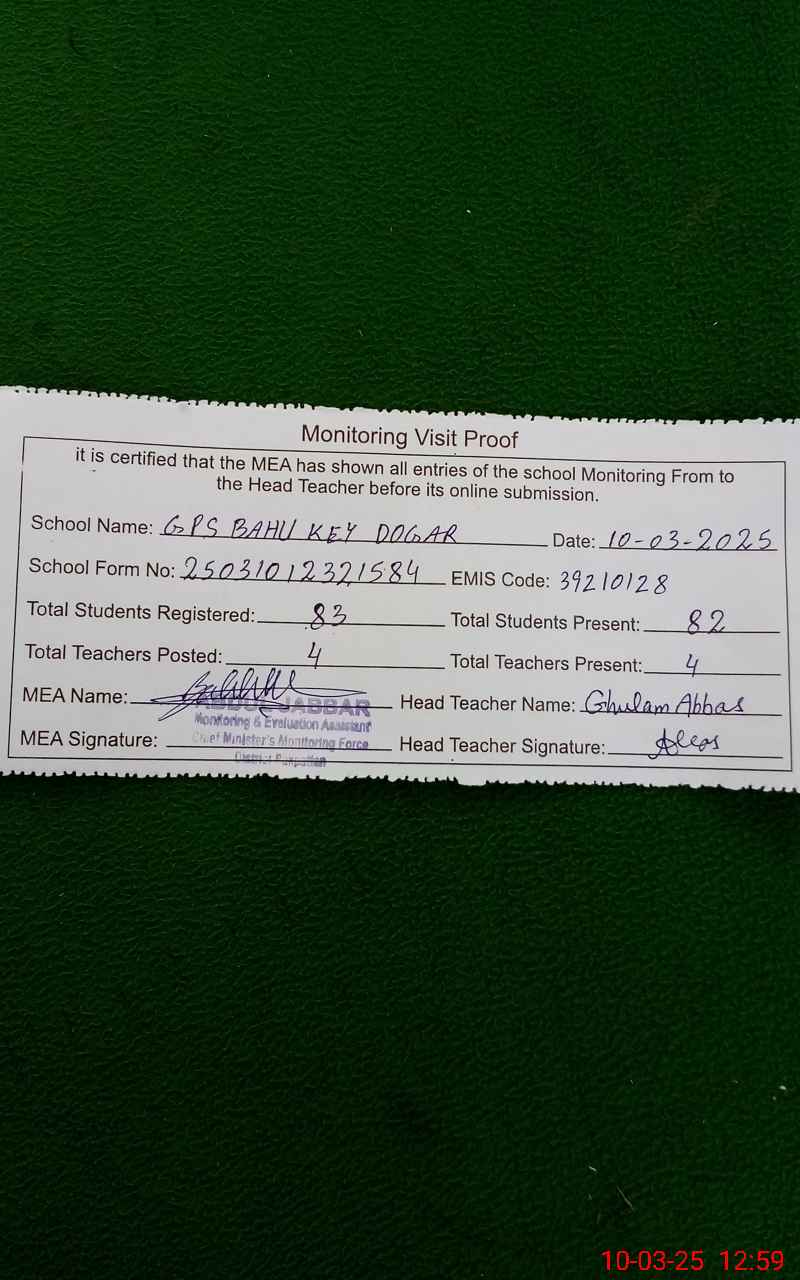 Monitoring Visit Proof
it is certified that the MEA has shown all entries of the school Monitoring From to
the Head Teacher before its online submission.
School Name: GPS BAHU KEY DOGAR Date: 10-03-2025
School Form No: 25031012321584 EMIS Code: 39210128
Total Students Registered: 83 Total Students Present: 82
Total Teachers Posted: 4 Total Teachers Present: 4
MEA Name: ABDUL JABBAR Head Teacher Name: Ghulam Abbas
Monitoring & Evaluation Assistant
MEA Signature: Chief Minister's Monitoring Force Head Teacher Signature:
District Pakpattan
10-03-25 12:59